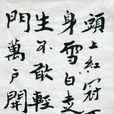 頭上紅冠
身雪白走
生不敢輕
門萬戶開